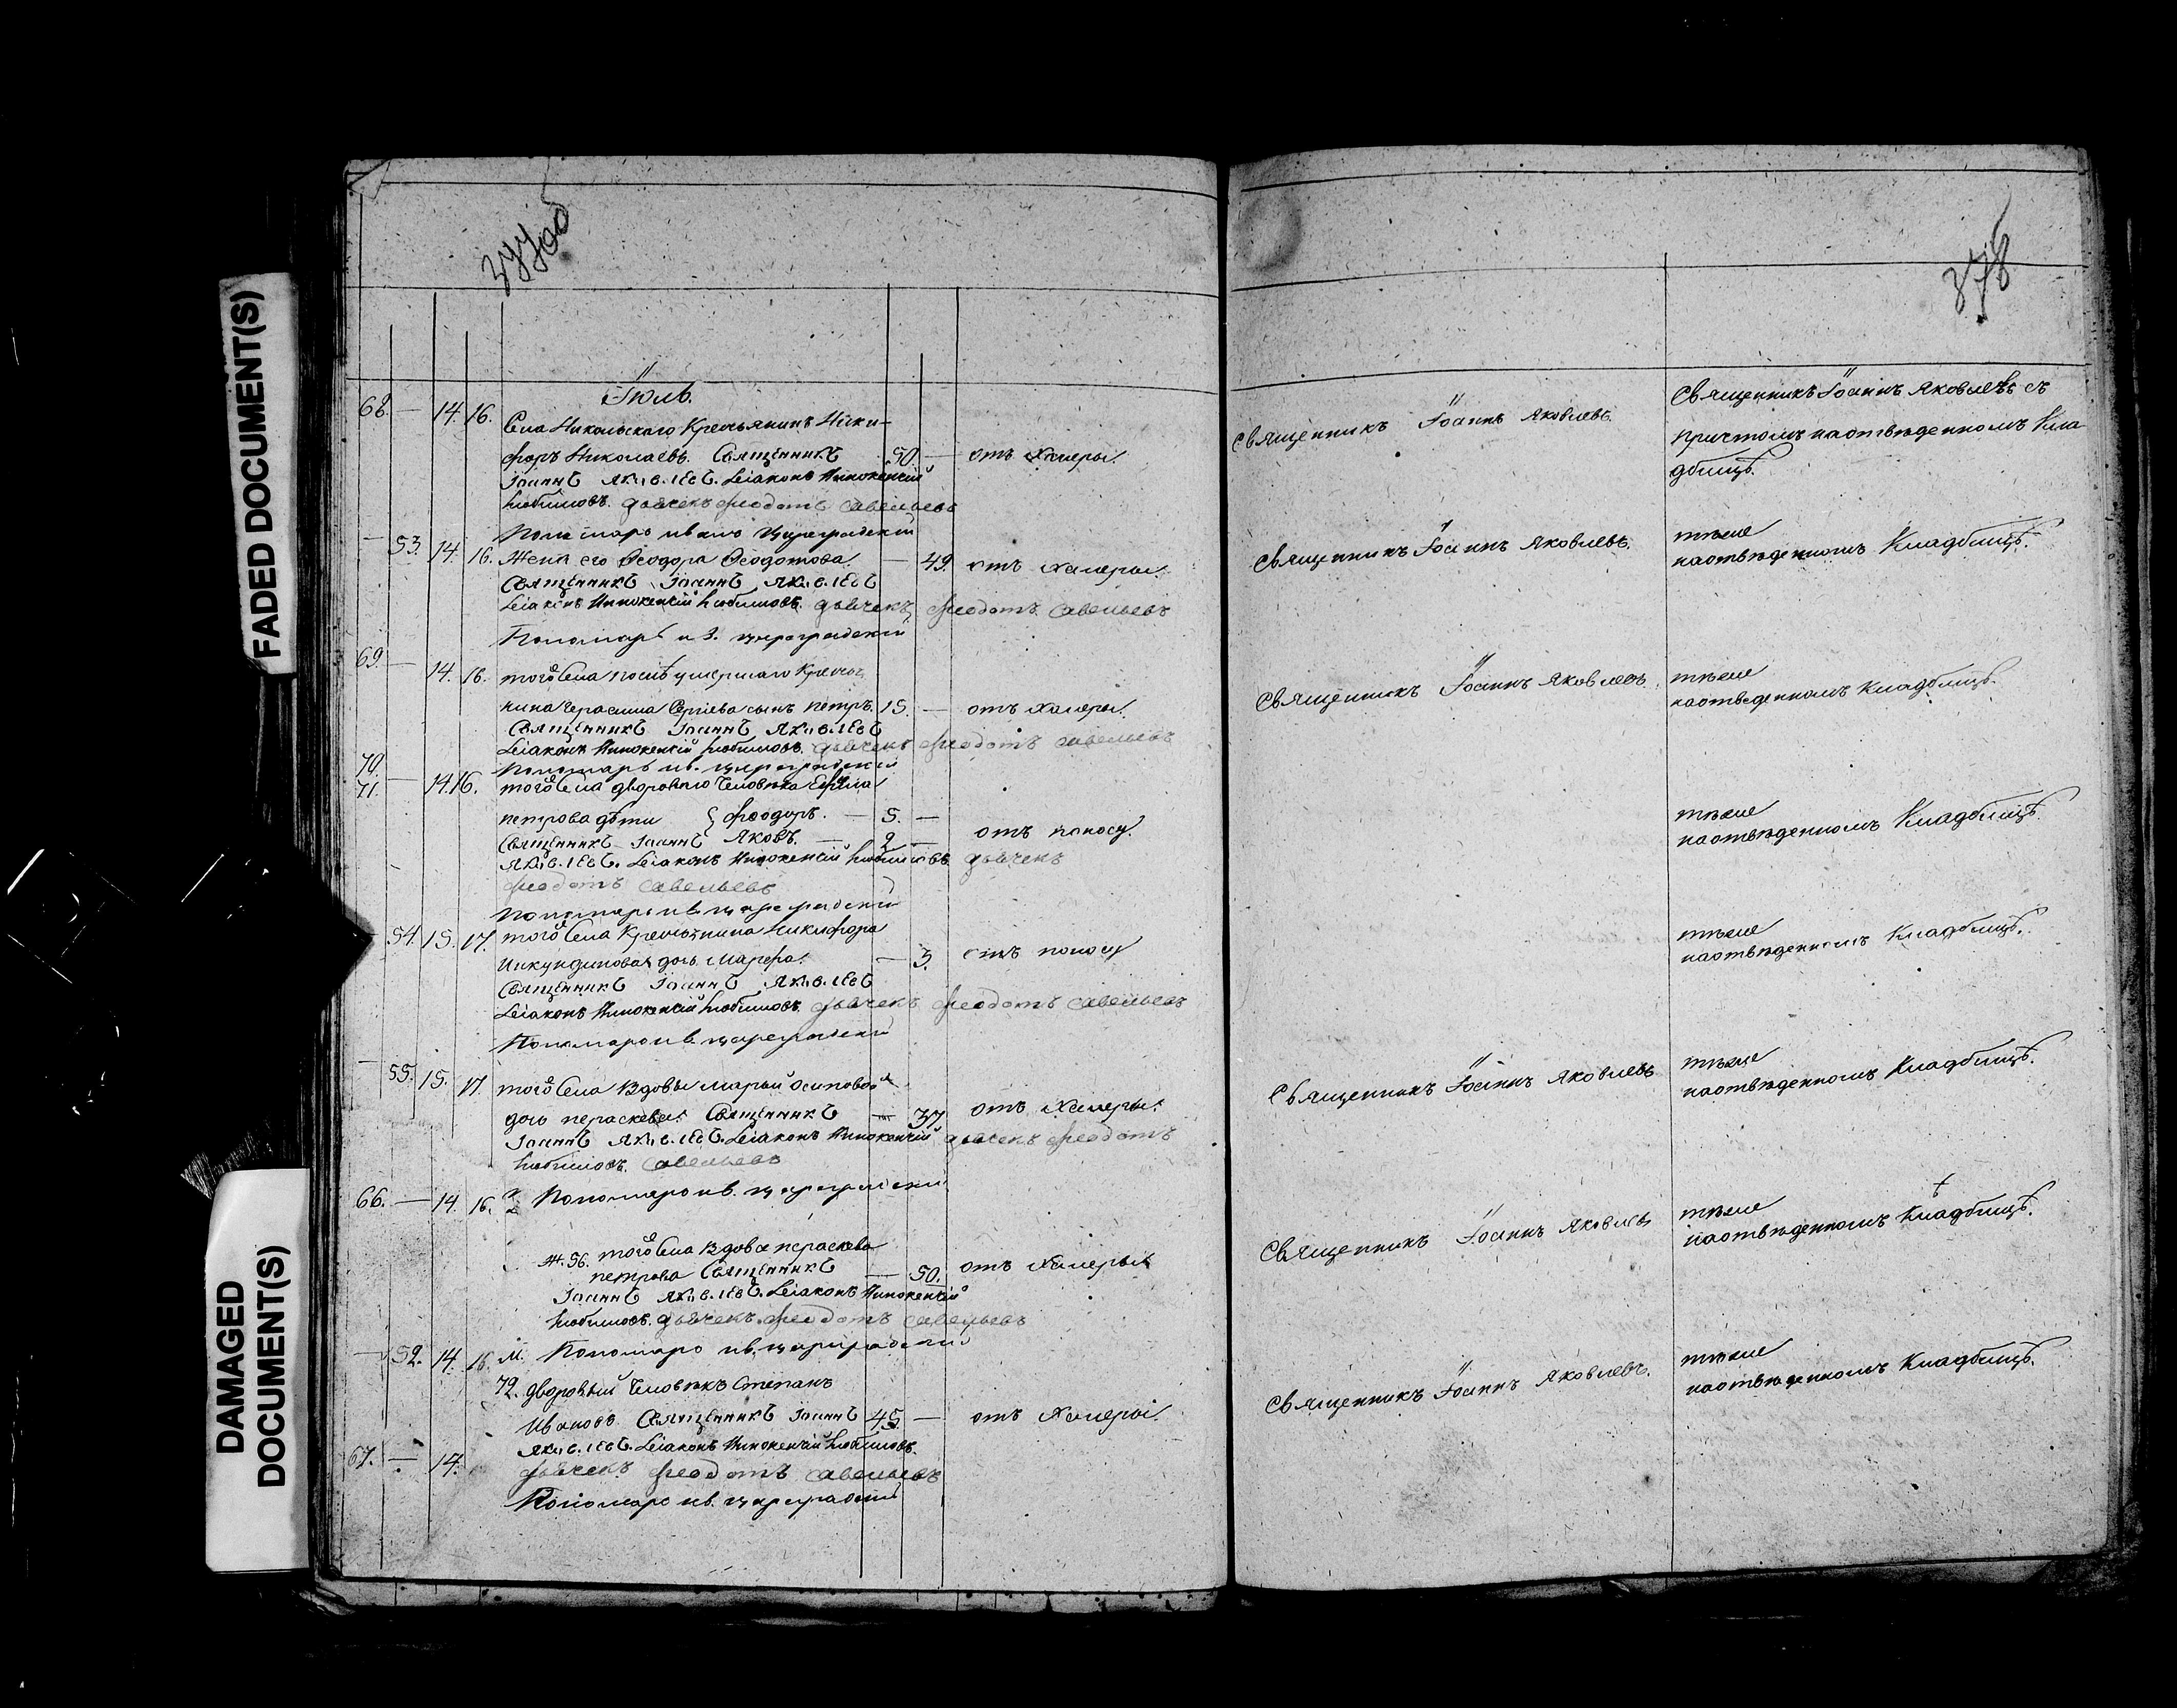 FADED DOCUMENT(S)
DAMAGED DOCUMENT(S)
377об
Іюль.
68. — 14. 16. Села Никольского Крестьянинъ Ники-
форъ Николаевъ. Священникъ 50. — отъ Холеры.
Іоаннъ Яковлевъ. Діаконъ Иннокентій
Любимовъ. дьячекъ Феодотъ Савельевъ
Пономарь Иванъ Цареградскій
— 53. 14. 16. Жена его Ѳеодора Ѳеодотова. — 49. отъ Холеры.
Священникъ Іоаннъ Яковлевъ
Діаконъ Иннокентій Любимовъ. дьячекъ Феодотъ Савельевъ
Пономарь Ив. Цареградскій
69. — 14. 16. того Села послѣ умершаго Кресть
нина Герасима Сергіева сынъ Петръ. 15. — отъ Холеры.
Священникъ Іоаннъ Яковлевъ
Діаконъ Иннокентій Любимовъ. дьячекъ Феодотъ Савельевъ
Пономарь Ив. Цареградскій
70. 71. — 14. 16. того Села двороваго Человѣка Ефима
Петрова дѣти { Феодоръ. — 5. —
Священникъ Іоаннъ Яковъ. — 2 — отъ поносу.
Яковлевъ. Діаконъ Иннокентій Любимовъ. дьячекъ
Феодотъ Савельевъ
Пономарь Ив. Цареградскій
54. 15. 17. того Села Крестьянина Никифора
дочь Марфа. — 3. отъ поносу
Священникъ Іоаннъ Яковлевъ
Діаконъ Иннокентій Любимовъ. дьячекъ Феодотъ Савельевъ
Пономарь Ив. Цареградскій
— 55. 15. 17. того Села Вдовы Марьи Осиповой
дочь Параскева. Священникъ — 37. отъ Холеры.
Іоаннъ Яковлевъ. Діаконъ Иннокентій дьячекъ Феодотъ
Любимовъ. Савельевъ
66. — 14. 16. Пономарь Ив. Цареградскій
Ж. 56. того Села Вдова Параскева
Петрова Священникъ — 50. отъ Холеры
Іоаннъ Яковлевъ. Діаконъ Иннокентій
Любимовъ. дьячекъ Феодотъ Савельевъ
— 52. 14. 16. М. Пономарь Ив. Цареградскій
72. дворовый Человѣкъ Степанъ
Ивановъ. Священникъ Іоаннъ 45. — отъ Холеры.
Яковлевъ. Діаконъ Иннокентій Любимовъ.
67. — 14. дьячекъ Феодотъ Савельевъ
Пономарь Ив. Цареградскій
378
Священникъ Іоаннъ Яковлевъ. Священникъ Іоаннъ Яковлевъ съ
причтомъ наотвѣденномъ Кла
дбищѣ.
Священникъ Іоаннъ Яковлевъ. тѣже
наотвѣденномъ Кладбищѣ.
Священникъ Іоаннъ Яковлевъ. тѣже
наотведенномъ Кладбищѣ.
тѣже
наотвѣденномъ Кладбищѣ.
тѣже
наотвѣденномъ Кладбищѣ.
Священникъ Іоаннъ Яковлевъ тѣже
наотвѣденномъ Кладбищѣ.
Священникъ Іоаннъ Яковлевъ тѣже
наотвѣденномъ Кладбищѣ.
Священникъ Іоаннъ Яковлевъ. тѣже
наотвѣденномъ Кладбищѣ.